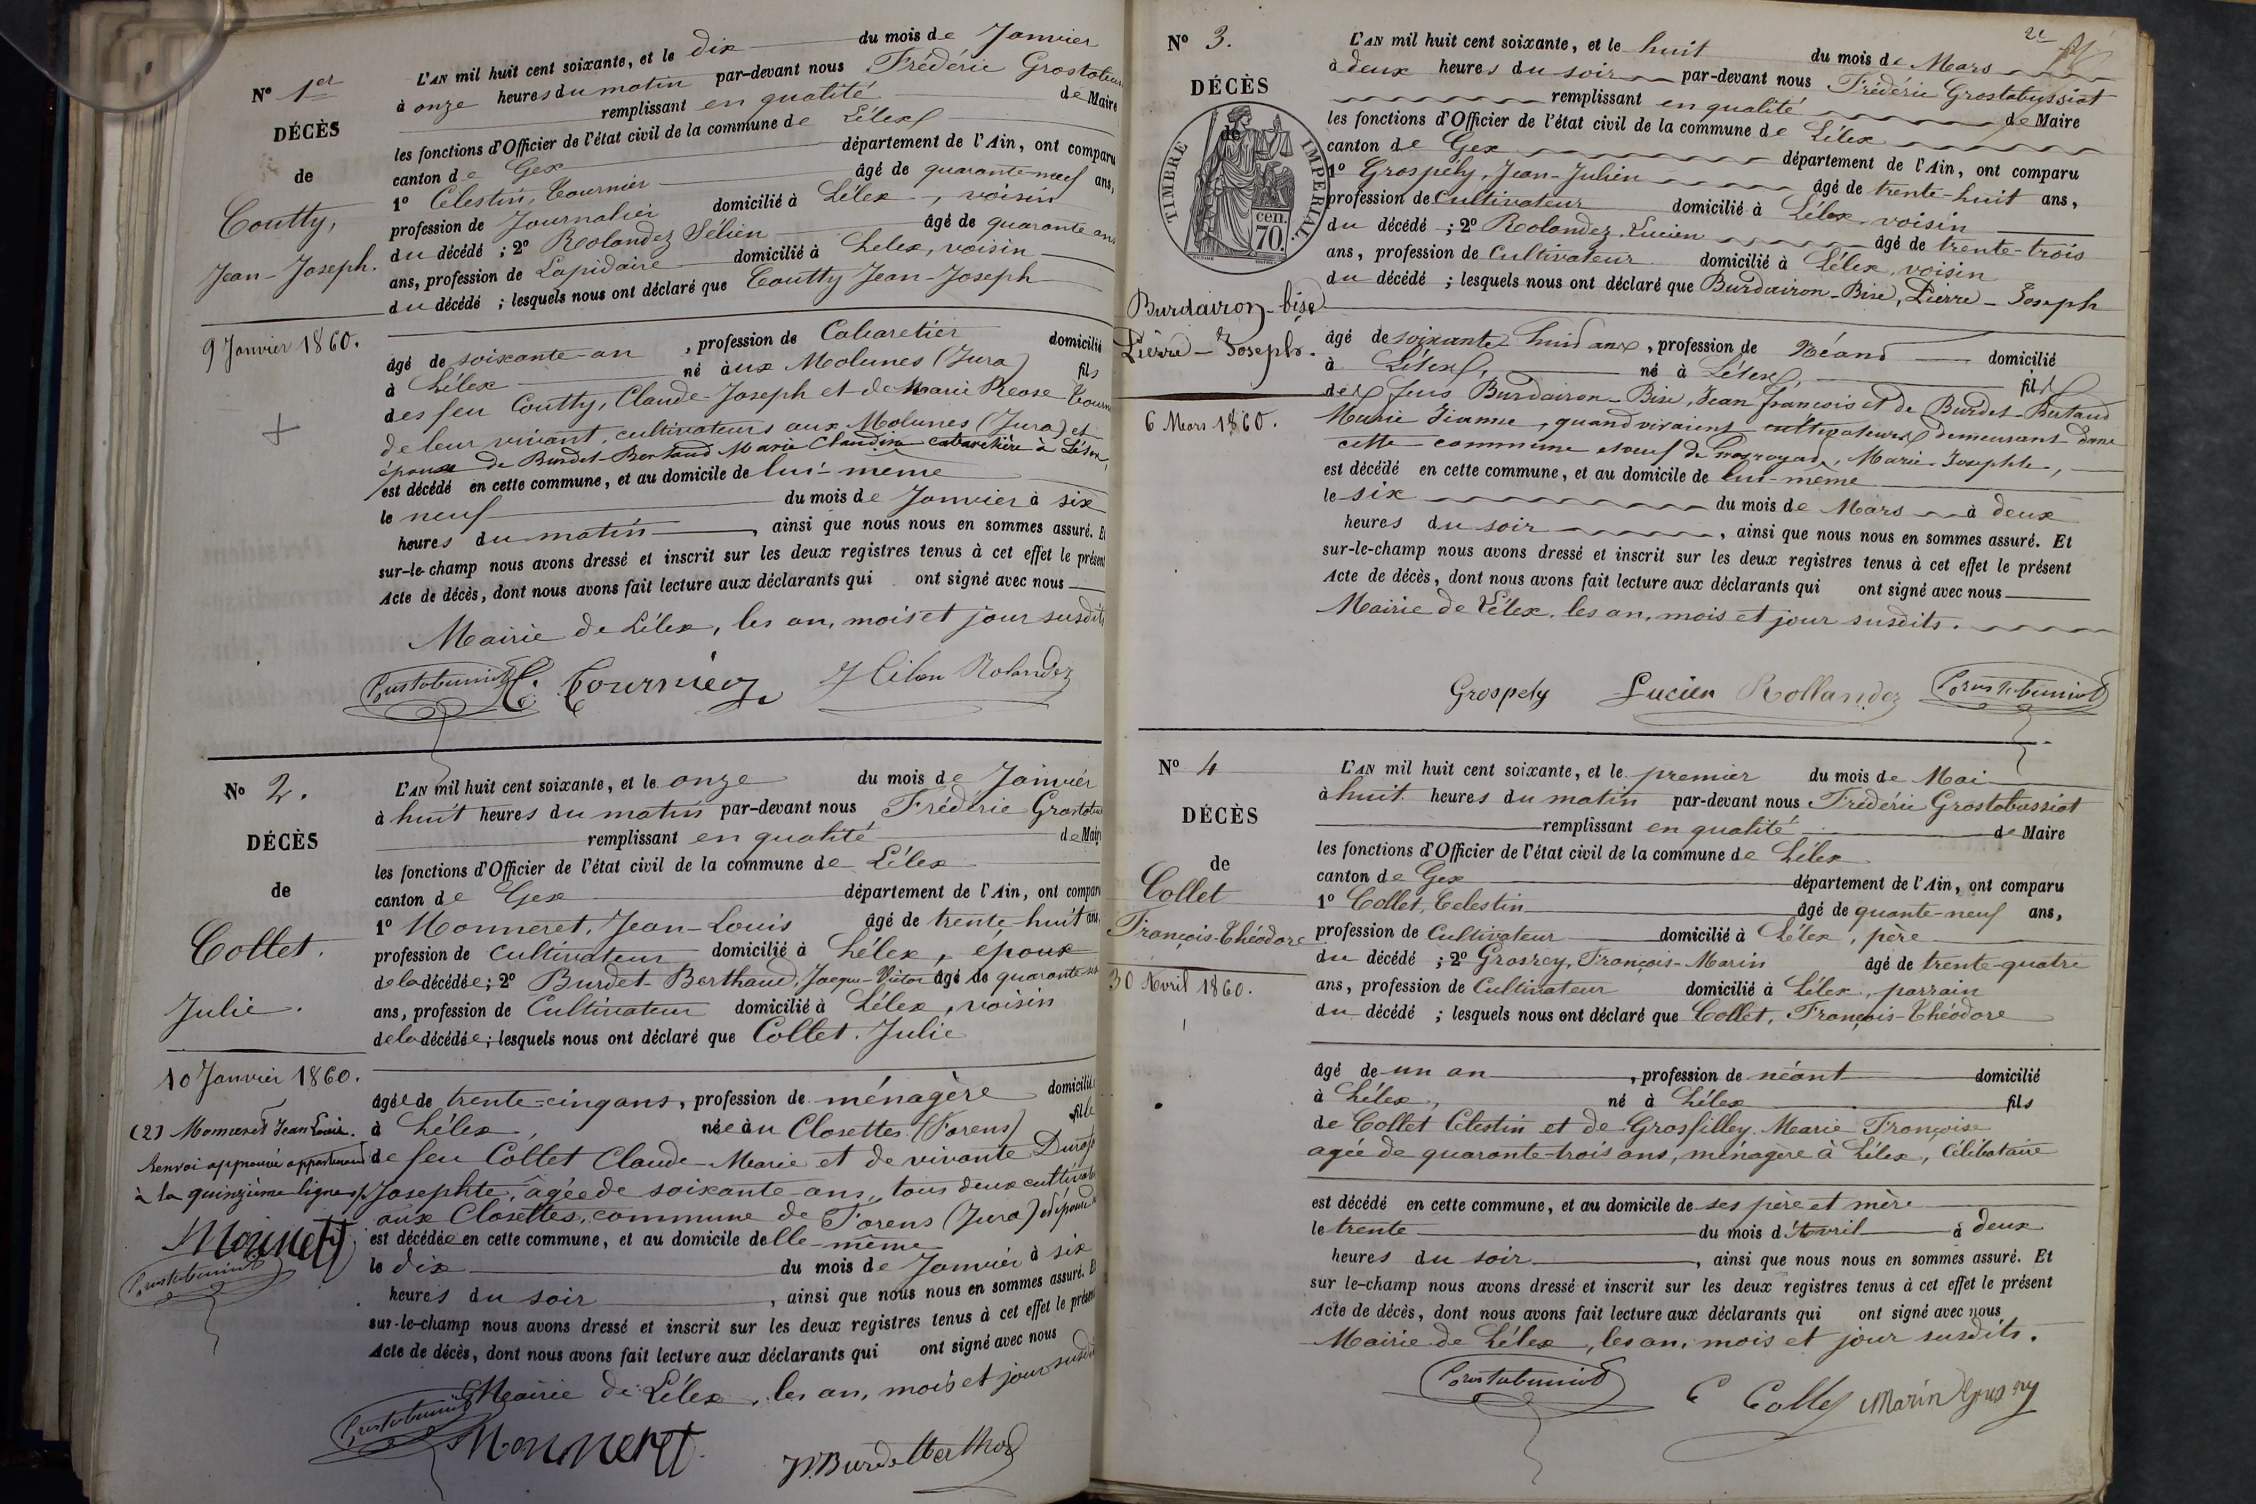 N° 1er
DÉCÈS
de
Coutty,
Jean-Joseph.
9 Janvier 1860.
L'AN mil huit cent soixante, et le dix du mois de Janvier
à onze heures du matin par-devant nous Frédéric Grostabussiat
remplissant en qualité de Maire
les fonctions d'Officier de l'état civil de la commune de Lélex
canton de Gex département de l'Ain, ont comparu
1° Celestin, Tournier âgé de quarante-neuf ans,
profession de Journalier domicilié à Lélex, voisin
du décédé ; 2° Rolandez âgé de quarante ans
ans, profession de Lapidaire domicilié à Lelex, voisin
du décédé ; lesquels nous ont déclaré que Coutty Jean-Joseph
âgé de soixante-an, profession de Cabaretier domicilié
à Lélex né aux Molunes (Jura) fils
des feu Coutty, Claude-Joseph et de Marie Rose
de leur vivant, cultivateurs aux Molunes (Jura) et
époux de Burdet-Bertaud Marie Claudine cabaretière à Lélex,
est décédé en cette commune, et au domicile de lui-même
le neuf du mois de Janvier à six
heures du matin, ainsi que nous nous en sommes assuré. Et
sur-le-champ nous avons dressé et inscrit sur les deux registres tenus à cet effet le présent
Acte de décès, dont nous avons fait lecture aux déclarants qui ont signé avec nous
Mairie de Lélex, les an, mois et jour susdits
C. Tournier Rolandez
N° 2.
DÉCÈS
de
Collet.
Julie.
10 Janvier 1860.
(2) Monneret Jean Louis.
Renvoi approuvé appartenant
à la quinzième ligne
Monneret
L'AN mil huit cent soixante, et le onze du mois de Janvier
à huit heures du matin par-devant nous Frédéric
remplissant en qualité de Maire
les fonctions d'Officier de l'état civil de la commune de Lélex
canton de Gex département de l'Ain, ont comparu
1° Monneret, Jean-Louis âgé de trente-huit ans,
profession de cultivateur domicilié à Lélex, époux
de la décédée ; 2° Burdet-Berthaud, Jacque-Victor âgé de quarante
ans, profession de Cultivateur domicilié à Lélex, voisin
de la décédée ; lesquels nous ont déclaré que Collet. Julie
âgée de trente-cinq ans, profession de ménagère domiciliée
à Lélex, née au Closettes (Forens) fille
de feu Collet Claude-Marie et de vivante
Josephte, agée de soixante-ans, tous deux
aux Closettes, commune de Forens (Jura)
est décédée en cette commune, et au domicile delle-même
le dix du mois de Janvier à six
heures du soir, ainsi que nous nous en sommes assuré. Et
sur-le-champ nous avons dressé et inscrit sur les deux registres tenus à cet effet le présent
Acte de décès, dont nous avons fait lecture aux déclarants qui ont signé avec nous
Mairie de Lélex, les an, mois et jour susdits
Monneret
N° 3.
DÉCÈS
de
TIMBRE IMPERIAL.
70 cen.
Burdairon-bise
Pierre-Joseph.
6 Mars 1860.
L'AN mil huit cent soixante, et le huit du mois de Mars
à deux heures du soir par-devant nous Frédéric Grostabussiat
remplissant en qualité de Maire
les fonctions d'Officier de l'état civil de la commune de Lélex
canton de Gex département de l'Ain, ont comparu
1° Grospély, Jean-Julien âgé de trente-huit ans,
profession de Cultivateur domicilié à Lélex, voisin
du décédé ; 2° Rolandez, Lucien âgé de trente-trois
ans, profession de Cultivateur domicilié à Lélex, voisin
du décédé ; lesquels nous ont déclaré que Burdairon-Bise, Pierre-Joseph
âgé de soixante huit ans, profession de Néant domicilié
à Lélex, né à Lélex, fils
des feus Burdairon-Bise, Jean françois et de Burdet-Bertaud
Marie Jeanne, quand vivaient cultivateurs demeurant dans
cette commune et veuf de Marie-Josephte,
est décédé en cette commune, et au domicile de lui-même
le six du mois de Mars à deux
heures du soir, ainsi que nous nous en sommes assuré. Et
sur-le-champ nous avons dressé et inscrit sur les deux registres tenus à cet effet le présent
Acte de décès, dont nous avons fait lecture aux déclarants qui ont signé avec nous
Mairie de Lélex, les an, mois et jour susdits.
Grospely Lucien Rollandez
N° 4
DÉCÈS
de
Collet
François-Théodore
30 Avril 1860.
L'AN mil huit cent soixante, et le premier du mois de Mai
à huit heures du matin par-devant nous Frédéric Grostabussiat
remplissant en qualité de Maire
les fonctions d'Officier de l'état civil de la commune de Lélex
canton de Gex département de l'Ain, ont comparu
1° Collet, Celestin âgé de quante-neuf ans,
profession de Cultivateur domicilié à Lélex, père
du décédé ; 2° Grosrey, François-Marin âgé de trente-quatre
ans, profession de Cultivateur domicilié à Lélex, parrain
du décédé ; lesquels nous ont déclaré que Collet, François-Théodore
âgé de un an, profession de néant domicilié
à Lélex, né à Lélex fils
de Collet Célestin et de Grosfilley Marie Françoise
agée de quarante-trois ans, ménagère à Lélex, Célibataire
est décédé en cette commune, et au domicile de ses père et mère
le trente du mois d'Avril à deux
heures du soir, ainsi que nous nous en sommes assuré. Et
sur le-champ nous avons dressé et inscrit sur les deux registres tenus à cet effet le présent
Acte de décès, dont nous avons fait lecture aux déclarants qui ont signé avec nous
Mairie de Lélex, les an, mois et jour susdits.
C Collet Marin